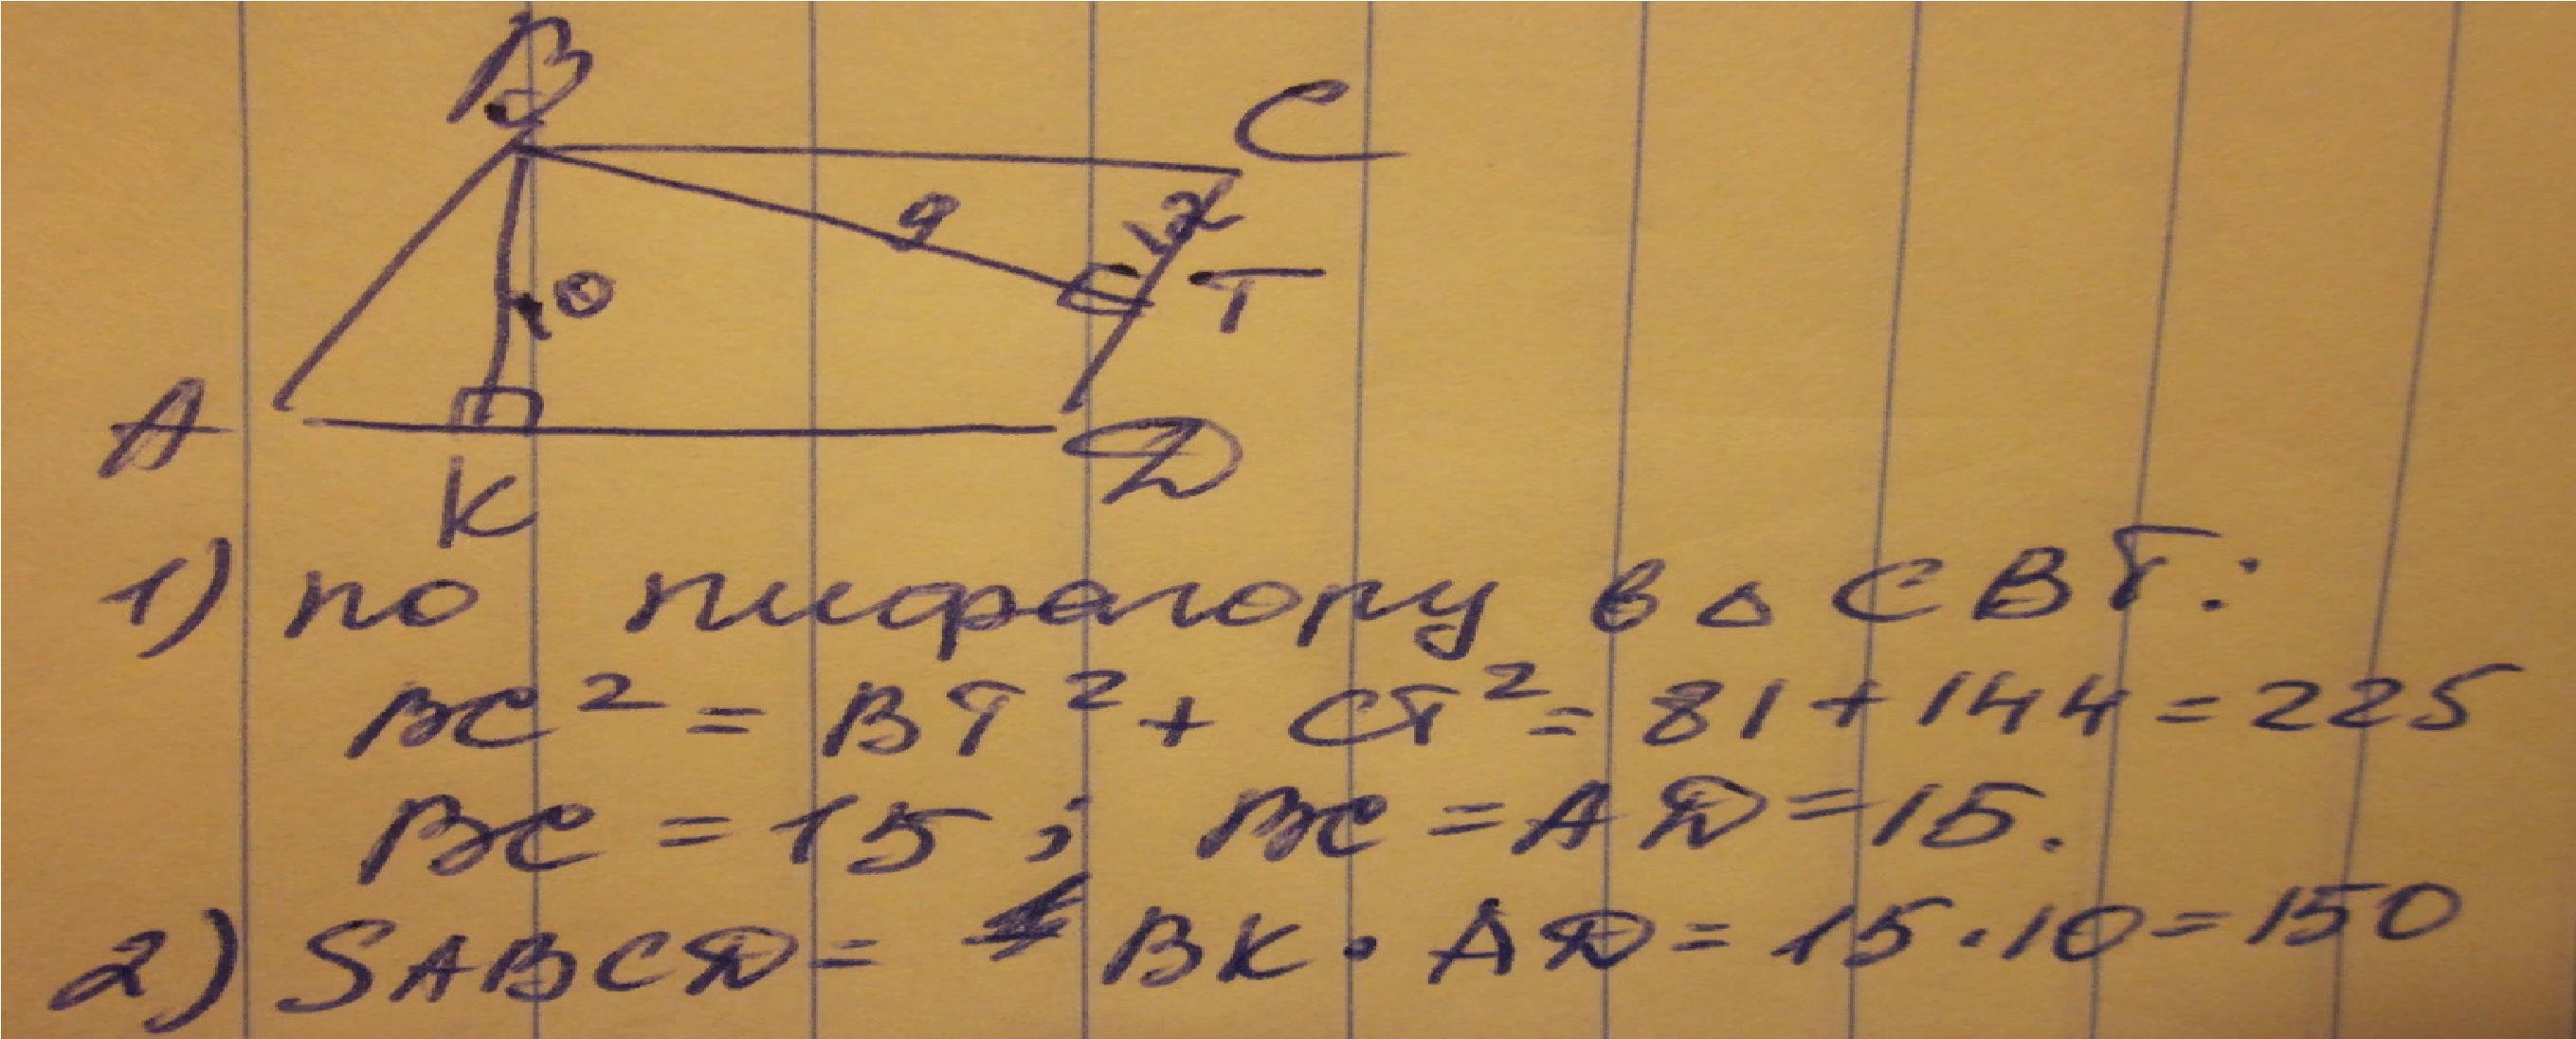 B
C
9
12
T
10
A
K
D
1) по пифагору в △ CBT:
BC² = BT² + CT² = 81 + 144 = 225
BC = 15 ; BC = AD = 15.
2) SABCD = BK · AD = 15 · 10 = 150